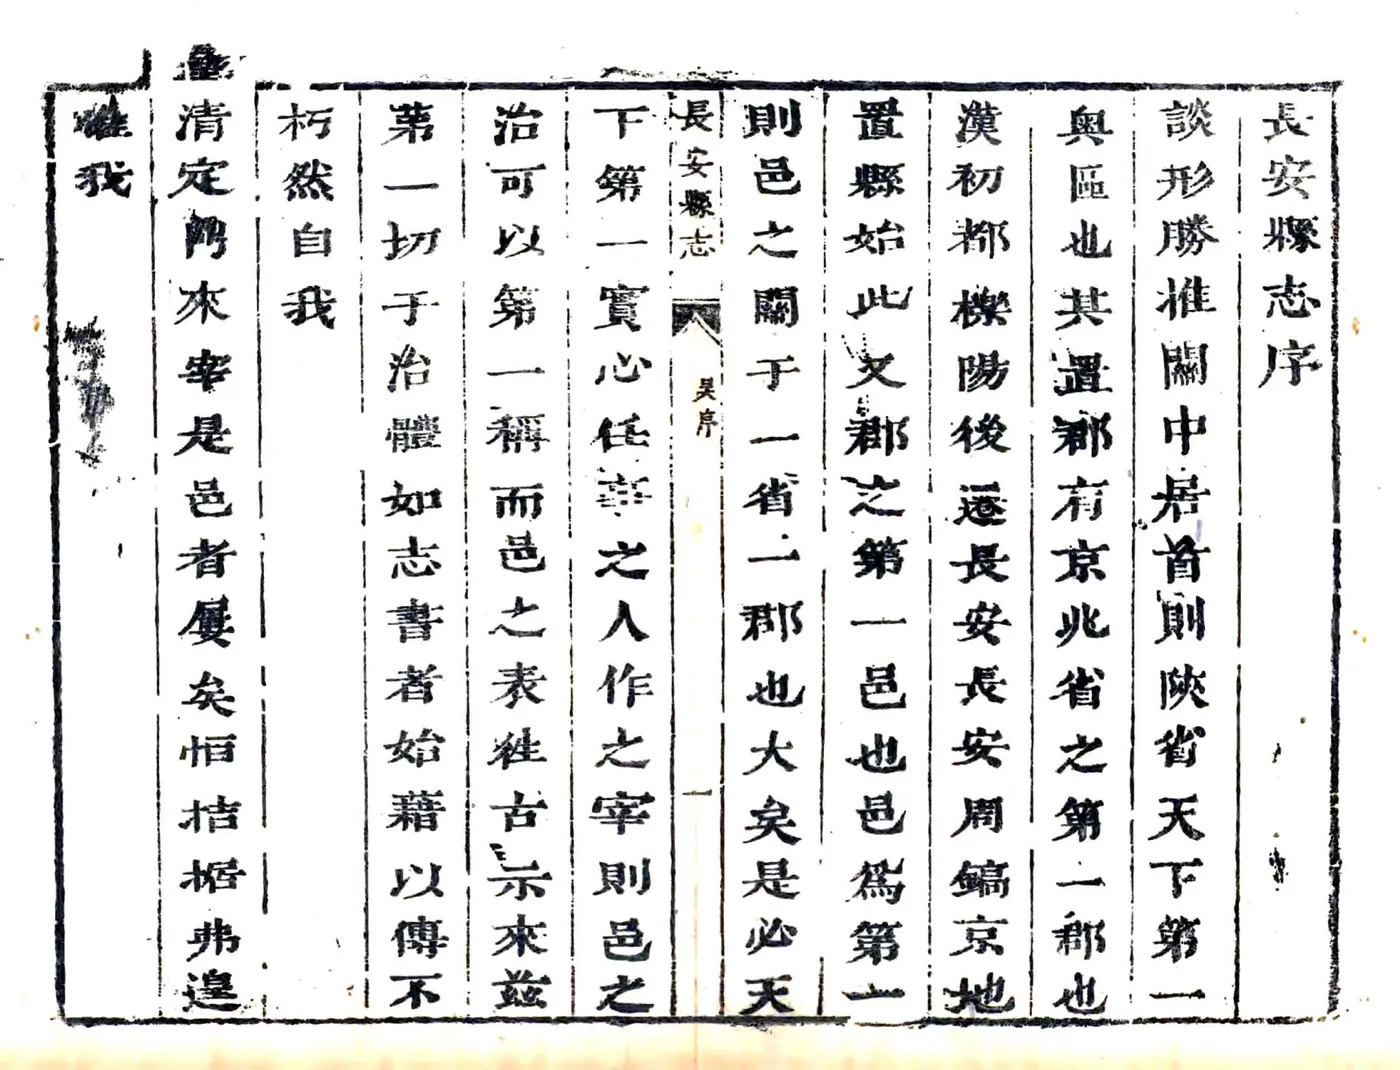 長安縣志序
談形勝推關中居首則陝省天下第一
奥區也其置郡有京兆省之第一郡也
漢初都櫟陽後遷長安長安周鎬京地
置縣始此又郡之第一邑也邑爲第一
則邑之關于一省一郡也大矣是必天
長安縣志
吴序
一
下第一實心任事之人作之宰則邑之
治可以第一稱而邑之表徃古示來兹
苐一切于治體如志書者始藉以傳不
朽然自我
清定鼎來宰是邑者屢矣恒拮据弗遑
我